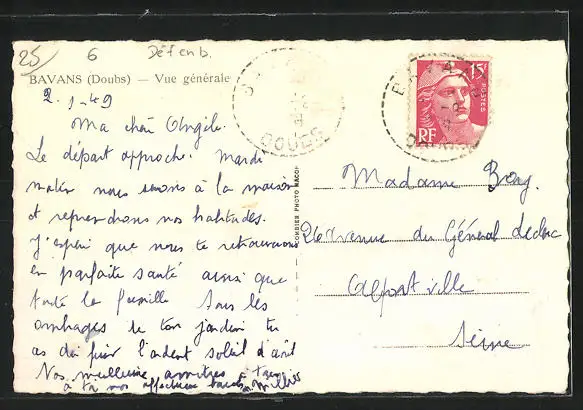 25
6
Défenb.
BAVANS (Doubs) — Vue générale
2.1.49
Ma chère Angèle.
Le départ approche. Mardi
matin nous serons à la maison
et reprendrons nos habitudes.
J'espère que nous te retrouverons
en parfaite santé ainsi que
toute la famille Sous les
ombrages de ton jardin tu
as dû fuir l'ardent soleil d'août
Nos meilleures amitiés à tous
à toi nos affectueux baisers
COMBIER PHOTO MACON
15F
POSTES
RF
DOUBS
Madame
26 avenue du Général Leclerc
Alfortville
Seine